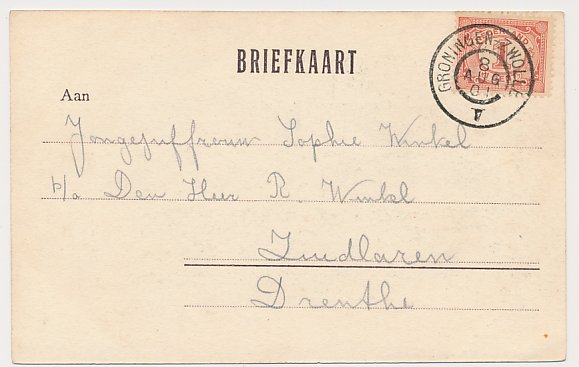 BRIEFKAART
NEDERLAND
1
GRONINGEN-ZWOLLE
8
AUG
01
A
Aan
Jongejuffrouw Sophie Winkel
p/a Den Heer R. Winkel
Zuidlaren
Drenthe